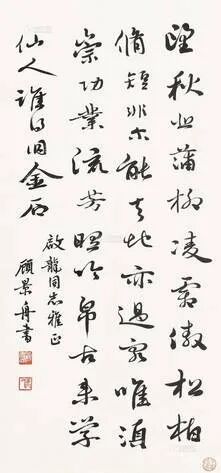 望秋悲蒲柳凌霜傲松柏
脩短非能此亦過客唯須
崇功業流芳昭竹帛古来学
仙人誰得固金石
啟龍同志雅正
顧景舟書